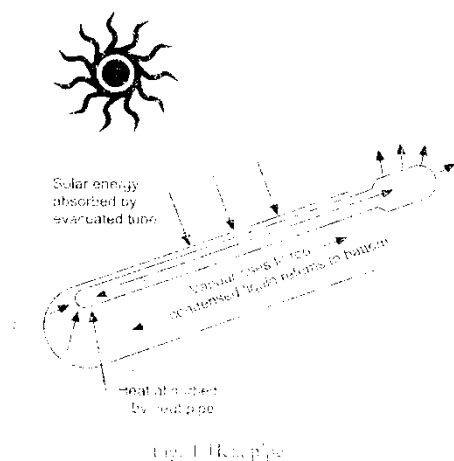 Solar energy
absorbed by
evacuated tube
Vapour rises to top
condensed liquid returns to bottom
Heat absorbed
by heat pipe
Fig. 1 Heat pipe